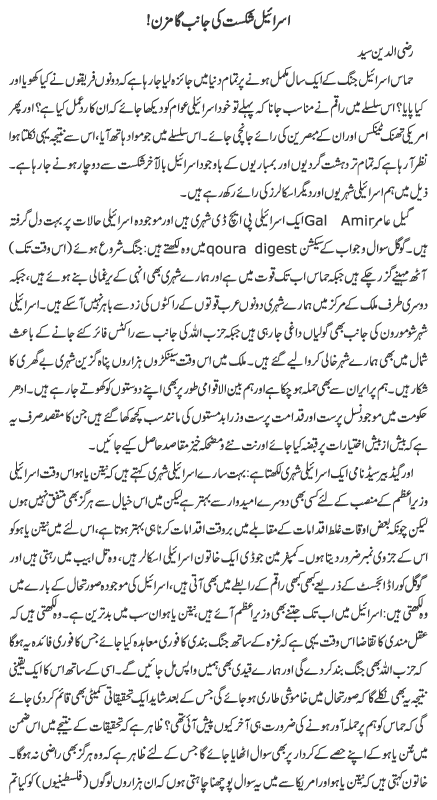 اسرائیل شکست کی جانب گامزن!
رضی الدین سید
حماس اسرائیل جنگ کے ایک سال مکمل ہونے پر تمام دنیا میں جائزہ لیا جا رہا ہے کہ دونوں فریقوں نے کیا کھویا اور
کیا پایا؟ اس سلسلے میں راقم نے مناسب جانا کہ پہلے تو خود اسرائیلی عوام کو دیکھا جائے کہ ان کا ردعمل کیا ہے؟ اور پھر
امریکی تھنک ٹینکس اور ان کے مبصرین کی رائے جانچی جائے۔ اس سلسلے میں جو مواد ہاتھ آیا، اس سے نتیجہ یہی نکلتا ہوا
نظر آ رہا ہے کہ تمام تر دہشت گردیوں اور بمباریوں کے باوجود اسرائیل بالآخر شکست سے دوچار ہونے جا رہا ہے۔
ذیل میں ہم اسرائیلی شہریوں اور دیگر اسکالرز کی رائے رکھ رہے ہیں۔
گیل عامر Gal Amir ایک اسرائیلی پی ایچ ڈی شہری ہیں اور موجودہ اسرائیلی حالات پر بہت دل گرفتہ
ہیں۔ گوگل سوال و جواب کے سیکشن qoura digest میں وہ لکھتے ہیں: جنگ شروع ہوئے (اس وقت تک)
آٹھ مہینے گزر چکے ہیں جبکہ حماس اب تک قوت میں ہے اور ہمارے شہری بھی انہی کے یرغمالی بنے ہوئے ہیں، جبکہ
دوسری طرف ملک کے مرکز میں ہمارے شہری دونوں عرب قوتوں کے راکٹوں کی زد سے باہر نہیں آ سکے ہیں۔ اسرائیلی
شہر شومورون کی جانب بھی گولیاں داغی جا رہی ہیں جبکہ حزب اللہ کی جانب سے راکٹس فائر کئے جانے کے باعث
شمال میں بھی ہمارے شہر خالی کروا لیے گئے ہیں۔ ملک میں اس وقت سینکڑوں ہزاروں پناہ گزین شہری بے گھری کا
شکار ہیں۔ ہم پر ایران سے بھی حملہ ہو چکا ہے اور ہم بین الاقوامی طور پر بھی اپنے دوستوں کو کھوتے جا رہے ہیں۔ ادھر
حکومت میں موجود نسل پرست اور قدامت پرست وزرا بدمستوں کی مانند سب کچھ کھا گئے ہیں جن کا مقصد صرف یہ
ہے کہ بیش از بیش اختیارات پر قبضہ کیا جائے اور نت نئے و مضحکہ خیز مقاصد حاصل کیے جائیں۔
اور گیڈ بیرسیڈ نامی ایک اسرائیلی شہری لکھتا ہے: بہت سارے اسرائیلی شہری کہتے ہیں کہ نیتن یاہو اس وقت اسرائیلی
وزیراعظم کے منصب کے لئے کسی بھی دوسرے امیدوار سے بہتر ہے لیکن میں اس خیال سے ہرگز بھی متفق نہیں ہوں
لیکن چونکہ بعض اوقات غلط اقدامات کے مقابلے میں بروقت اقدامات کرنا ہی بہتر ہوتا ہے، اس لئے میں نیتن یاہو
اس کے جزوی نمبر ضرور دیتا ہوں۔ کمفرمین جوڈی ایک خاتون اسرائیلی اسکالر ہیں، وہ تل ابیب میں رہتی ہیں اور
گوگل کورا ڈائجسٹ کے ذریعے کبھی کبھی راقم کے رابطے میں بھی آتی ہیں، اسرائیل کی موجودہ صورتحال کے بارے میں
وہ لکھتی ہیں: اسرائیل میں اب تک جتنے بھی وزیراعظم آئے ہیں، نیتن یاہو ان سب میں بدترین ہے۔ وہ لکھتی ہیں کہ
عقل مندی کا تقاضا اس وقت یہی ہے کہ غزہ کے ساتھ جنگ بندی کا فوری معاہدہ کیا جائے جس کا فوری فائدہ یہ ہو گا
کہ حزب اللہ بھی جنگ بند کر دے گی اور ہمارے قیدی بھی ہمیں واپس مل جائیں گے۔ اسی کے ساتھ اس کا ایک یقینی
نتیجہ یہ بھی نکلے گا کہ صورتحال میں خاموشی طاری ہو جائے گی جس کے بعد شاید ایک تحقیقاتی کمیٹی بھی قائم کر دی جائے
گی کہ حماس کو ہم پر حملہ آور ہونے کی ضرورت ہی آخر کیوں پیش آئی تھی؟ ظاہر ہے کہ تحقیقات کے نتیجے میں اس ضمن
میں نیتن یاہو کے اپنے حصے کے کردار پر بھی سوال اٹھایا جائے گا جس کے لئے ظاہر ہے کہ وہ ہرگز بھی راضی نہ ہو گا۔
خاتون کہتی ہیں کہ نیتن یاہو اور امریکا سے میں یہ سوال پوچھنا چاہتی ہوں کہ ان ہزاروں لوگوں (فلسطینیوں) کو کیا تم